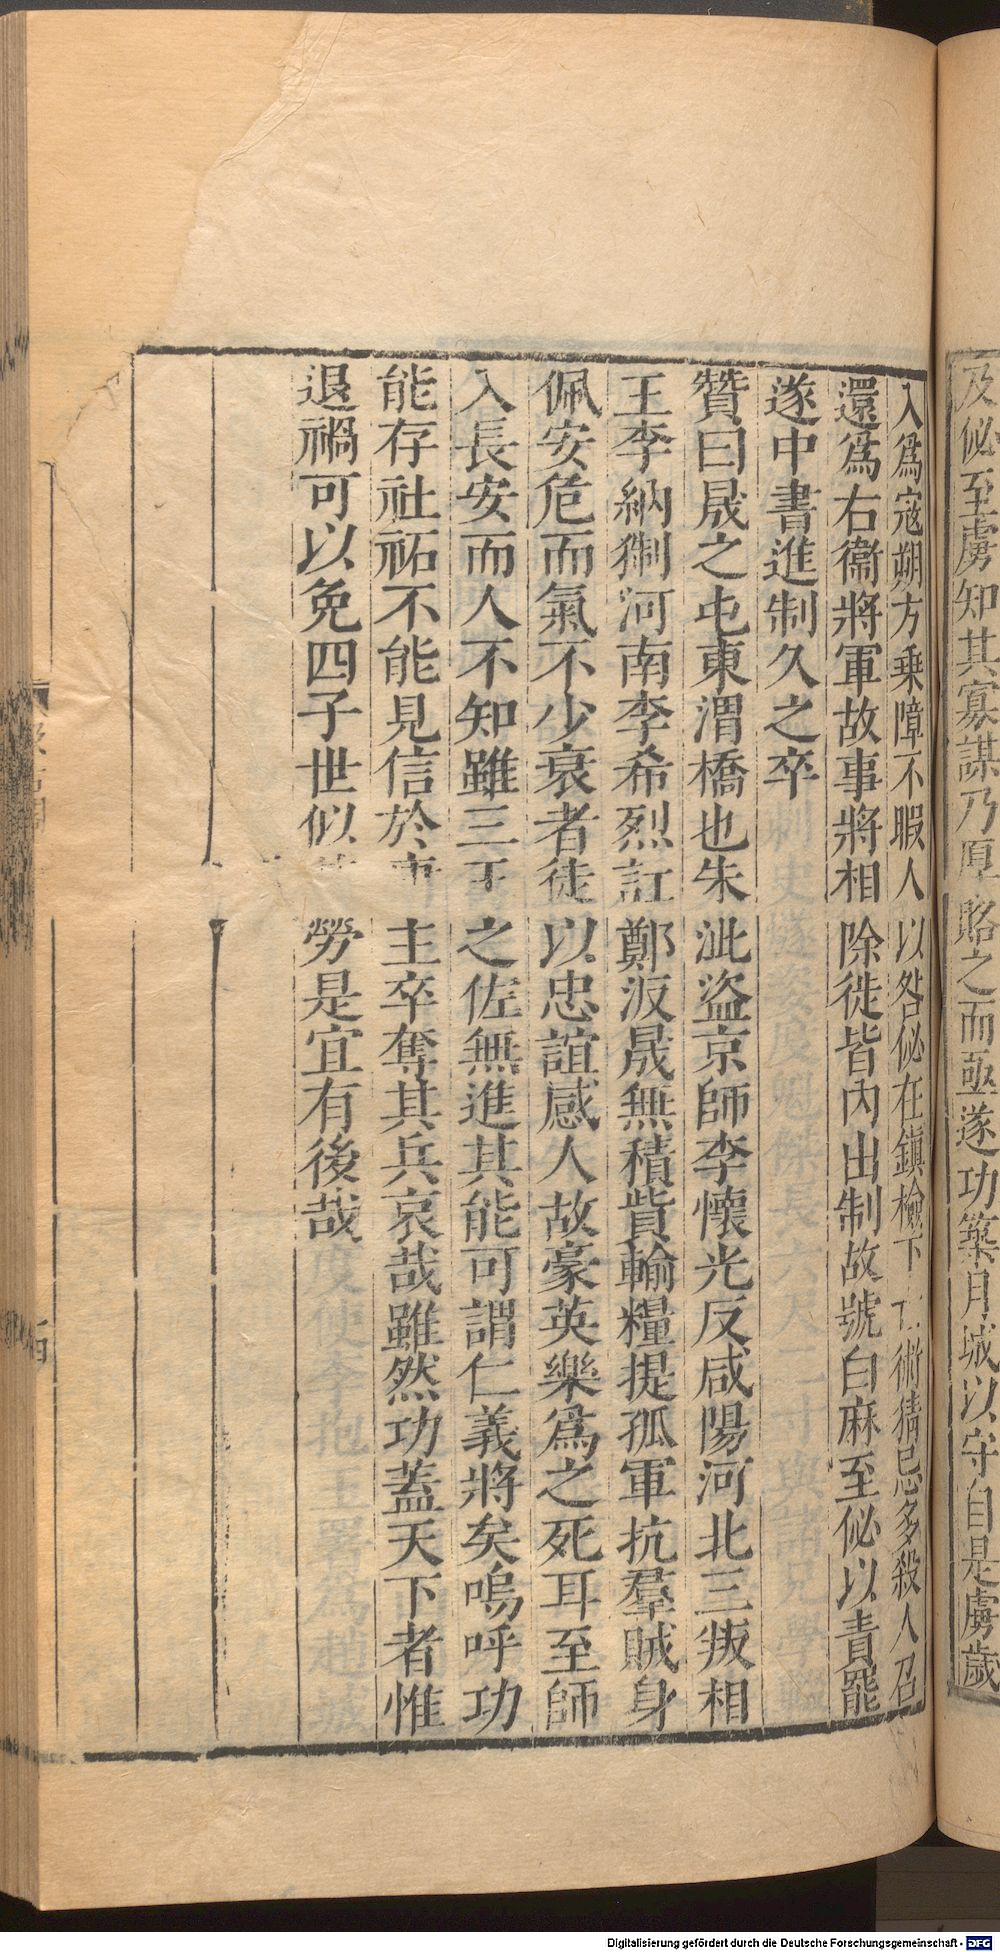 及佖至虜知其寡謀乃厚賂之而亟遂功築月城以守自是虜歲
入爲寇朔方乗障不暇人以咎佖在鎮檢下 術猜忌多殺人召
還爲右衞將軍故事將相除徙皆內出制故號白麻至佖以責罷
遂中書進制久之卒
贊曰晟之屯東渭橋也朱泚盜京師李懷光反咸陽河北三叛相
王李納猘河南李希烈訌鄭汳晟無積貲輸糧提孤軍抗羣賊身
佩安危而氣不少衰者徒以忠誼感人故豪英樂爲之死耳至師
入長安而人不知雖三王之佐無進其能可謂仁義將矣嗚呼功
能存社祏不能見信於 主卒奪其兵哀哉雖然功蓋天下者惟
退禍可以免四子世似 勞是宜有後哉
Digitalisierung gefördert durch die Deutsche Forschungsgemeinschaft - DFG